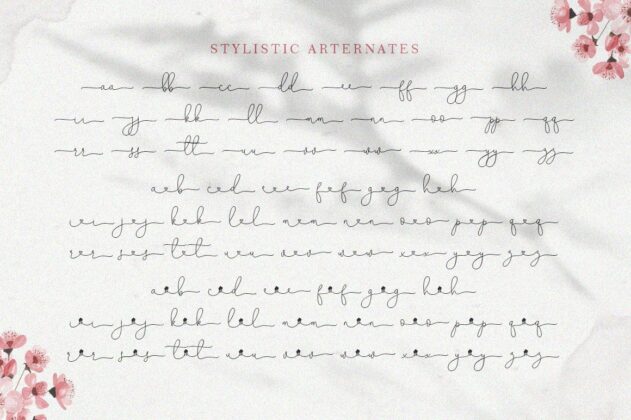 STYLISTIC ARTERNATES
aa bb cc dd ee ff gg hh
ii jj kk ll mm nn oo pp qq
rr ss tt uu vv ww xx yy zz
aeb ced eee fef geg heh
iei jej kek lel mem nen oeo pep qeq
rer ses tet ueu vev wew xex yey zez
a♥b c♥d e♥e f♥f g♥g h♥h
i♥i j♥j k♥k l♥l m♥m n♥n o♥o p♥p q♥q
r♥r s♥s t♥t u♥u v♥v w♥w x♥x y♥y z♥z